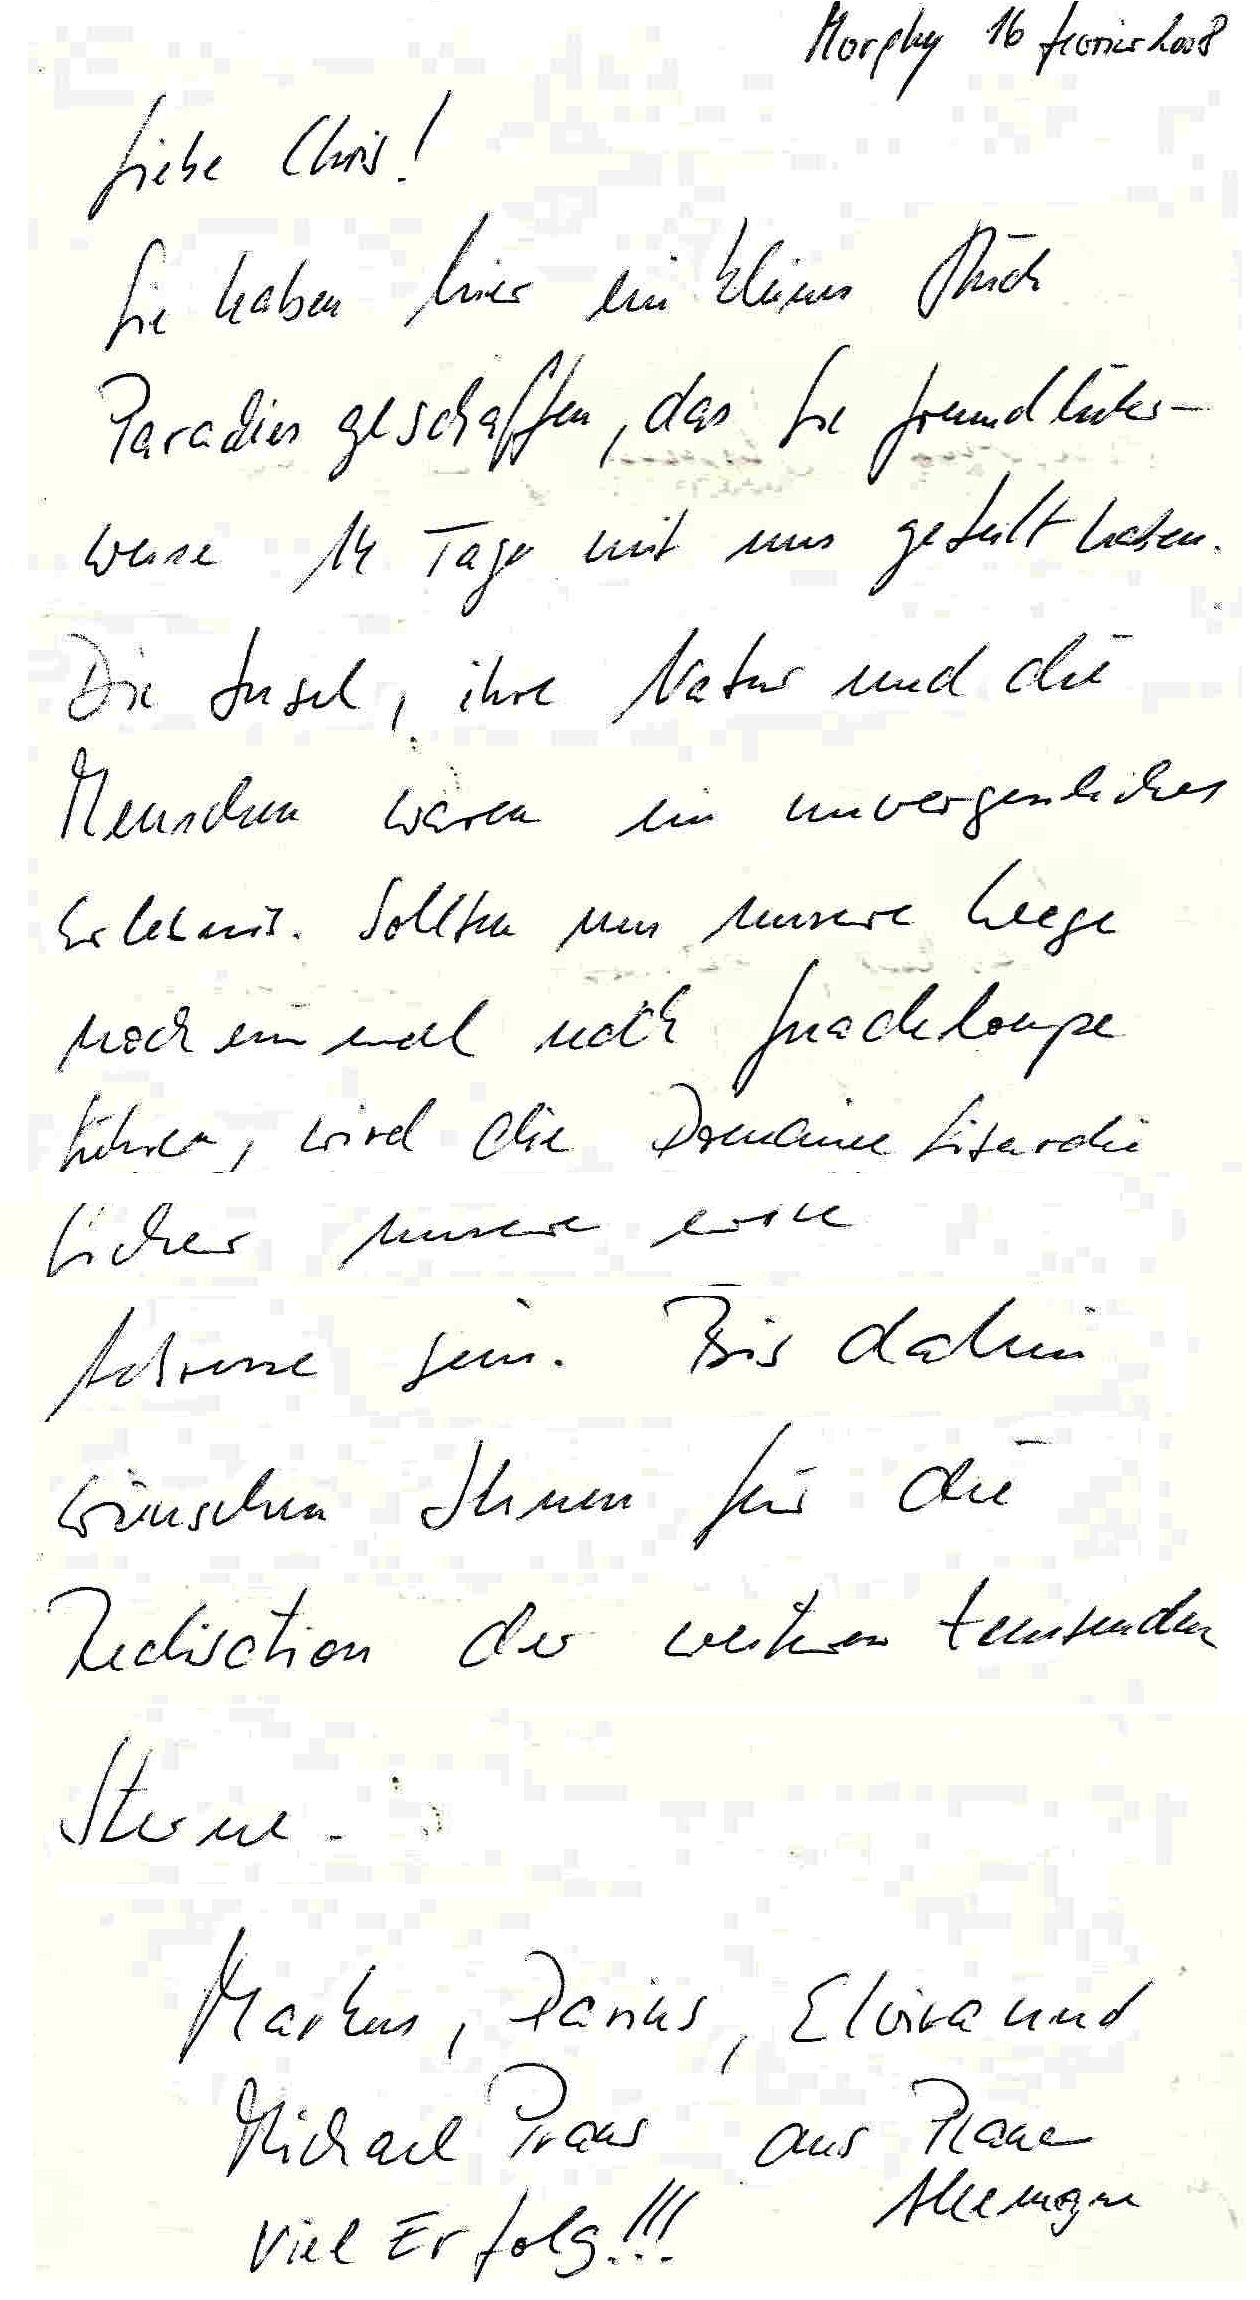 Morphy 16 fevrier 2008
Liebe Chris!
Sie haben hier ein kleines Stück
Paradies geschaffen, das Sie freundlicher-
weise 14 Tage mit uns geteilt haben.
Die Insel, ihre Natur und die
Menschen waren ein unvergessliches
Erlebnis. Sollten uns unsere Wege
noch einmal nach Guadeloupe
führen, wird die Domaine Lizardie
sicher unsere erste
Adresse sein. Bis dahin
wünschen Ihnen für die
der weiteren tausenden
Sterne.
Markus, Darius, Elvira und
Michael aus Plaue
Allemagne
Viel Erfolg!!!